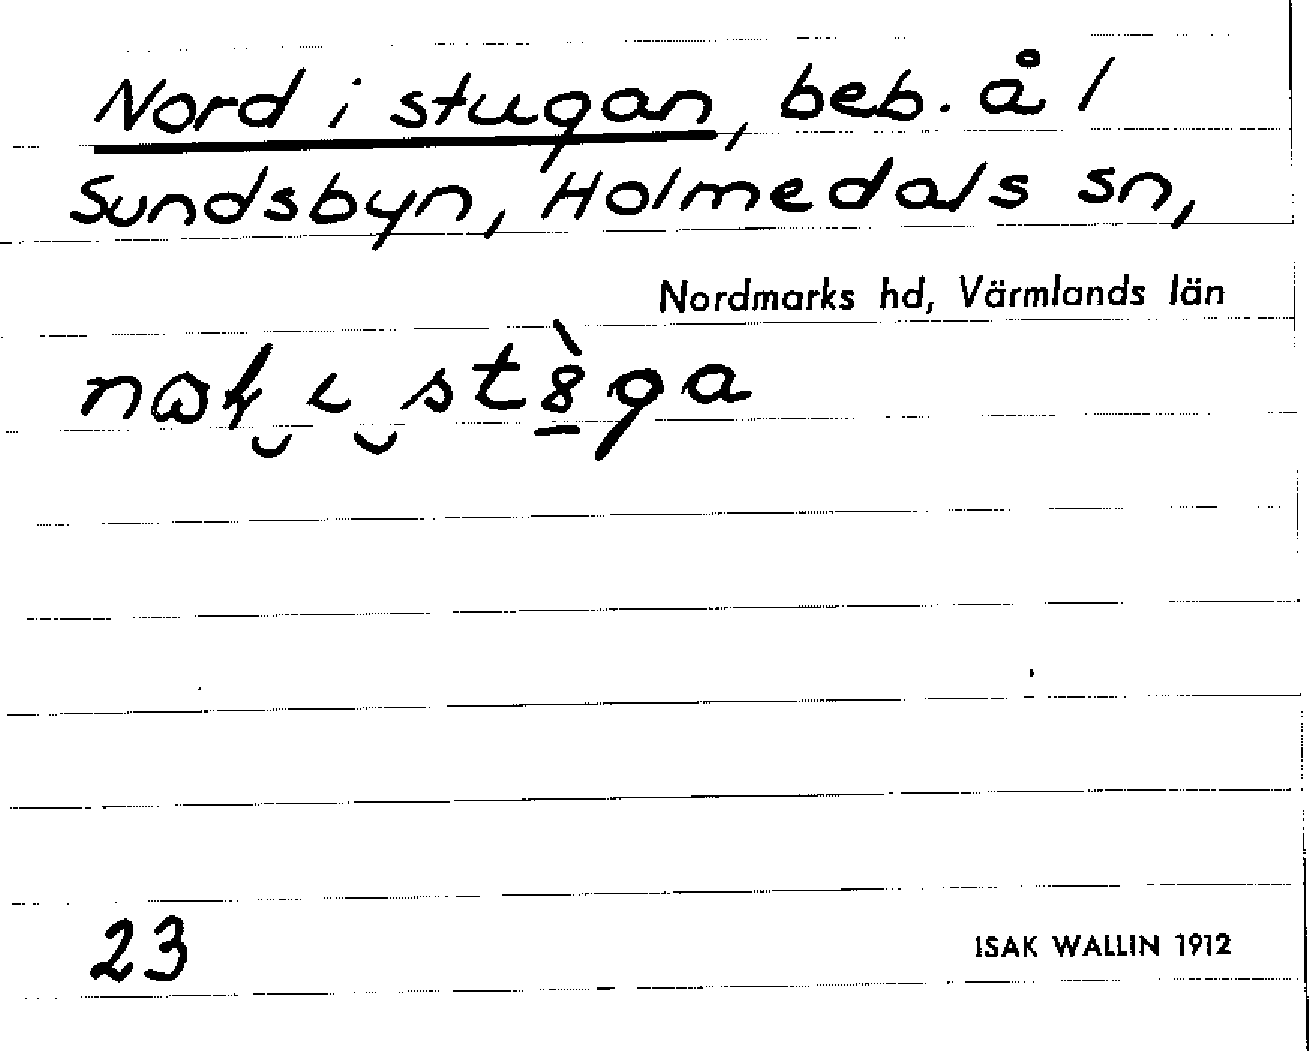 Nord i stugan, beb. å /
Sundsbyn, Holmedals sn,
Nordmarks hd, Värmlands län
23
ISAK WALLIN 1912